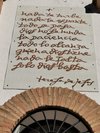 nada te turbe
nada te espante
todo se pasa
Dios no se muda
la paciencia
todo lo alcanza
quien a Dios tiene
nada le falta
solo Dios basta